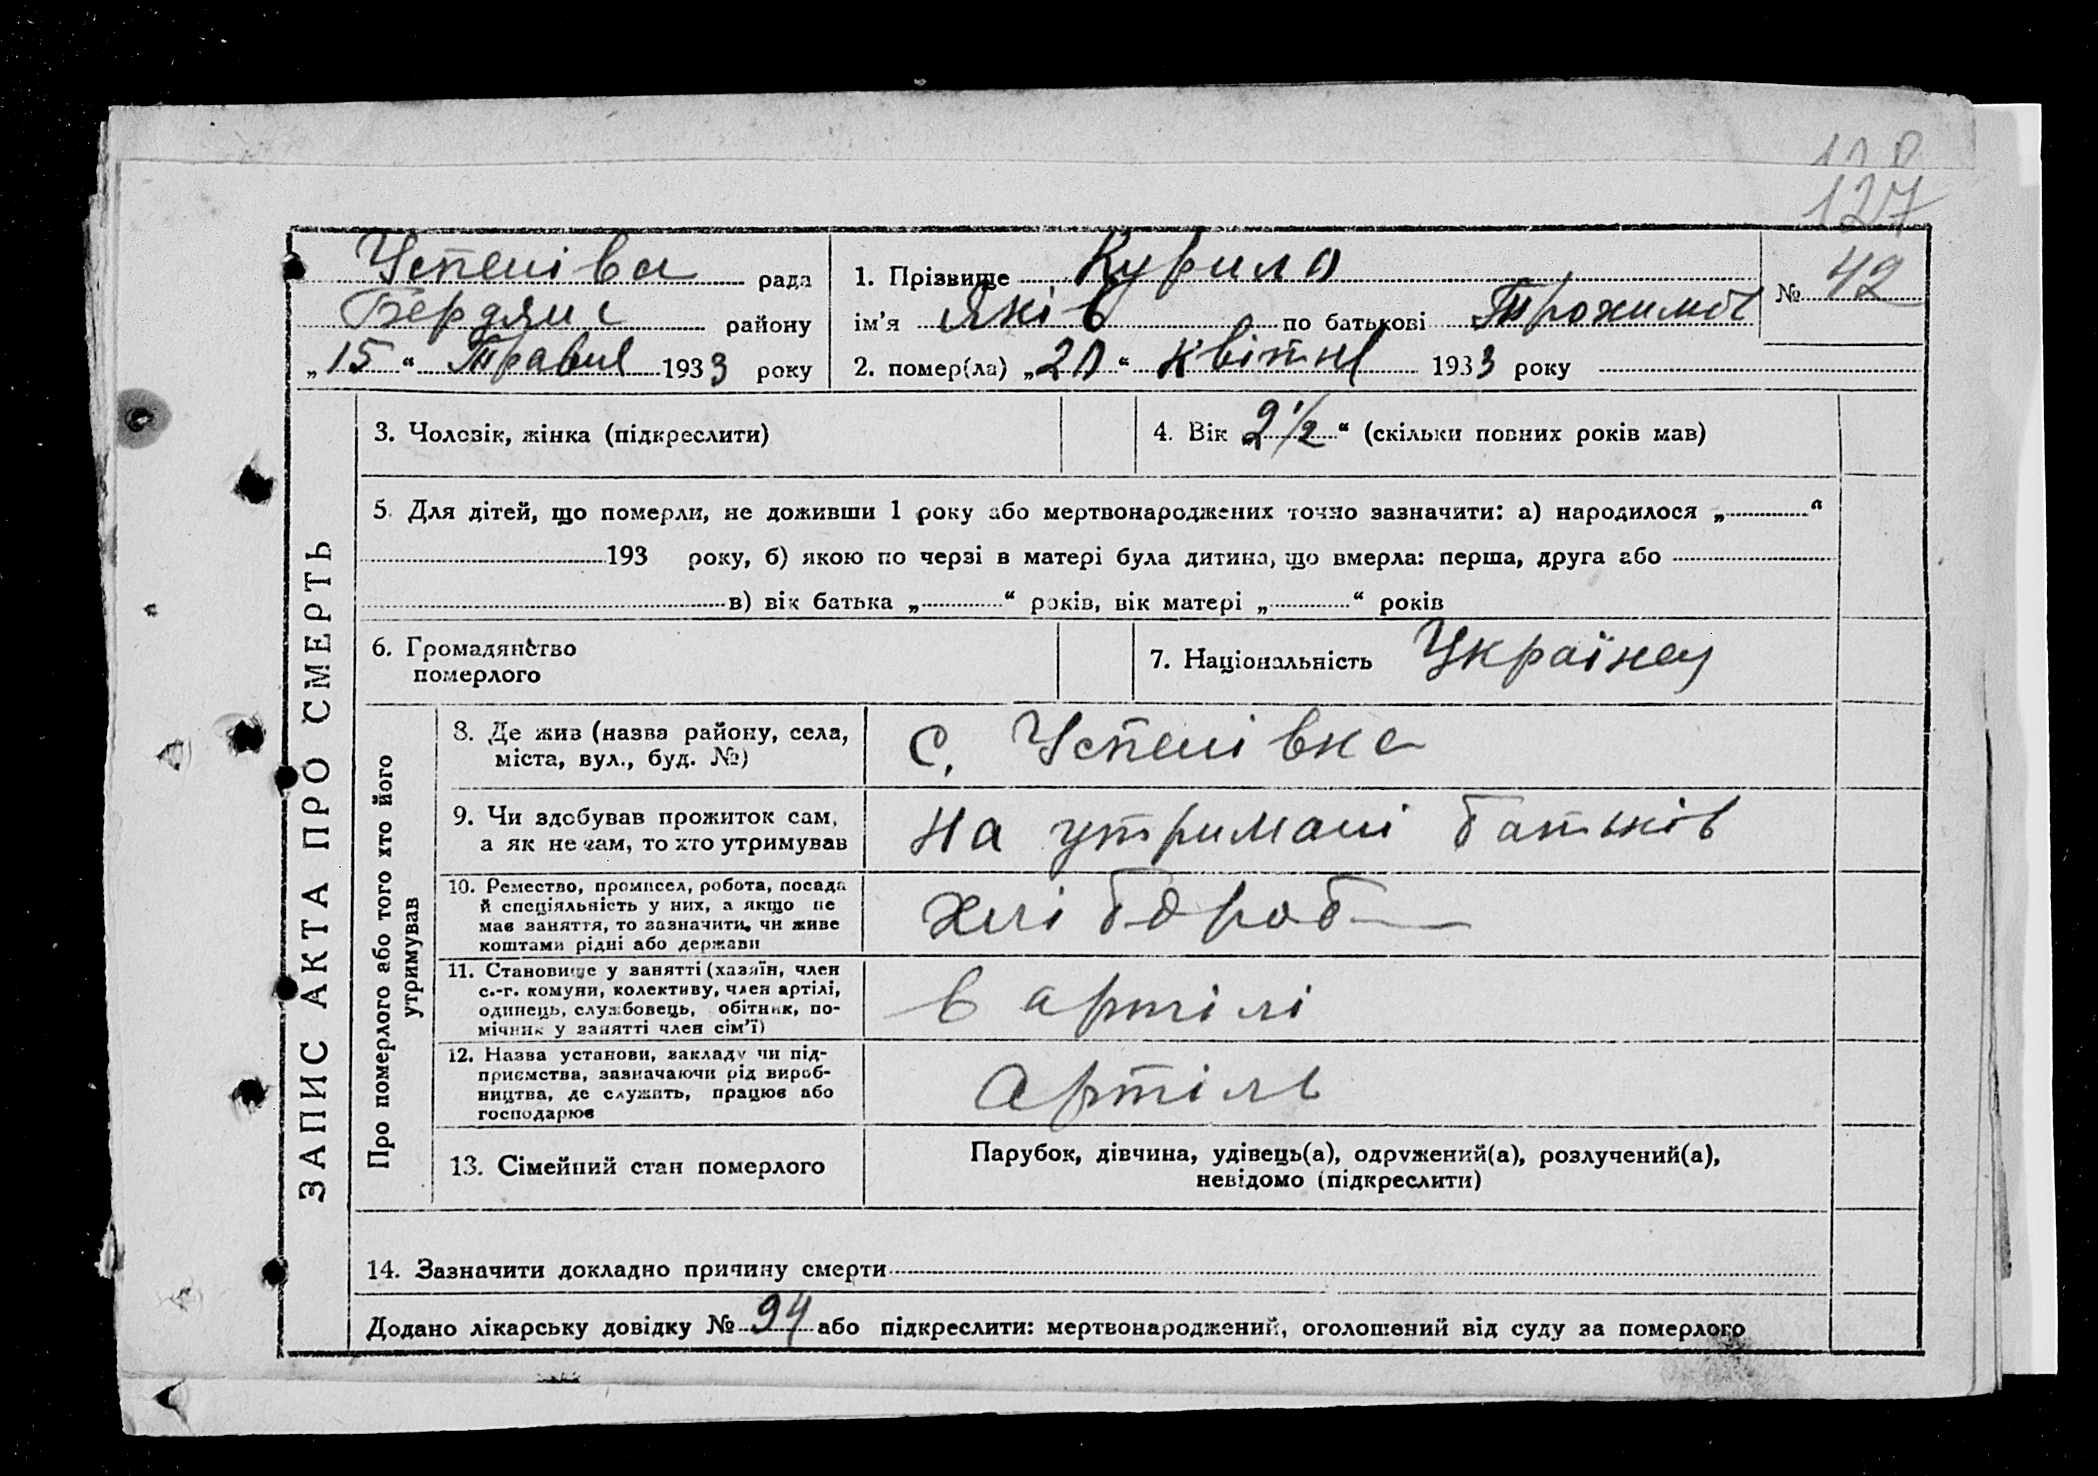 128
127
Успенівсь рада
Бердянс району
„15“ Травня 1933 року
1. Прізвище Курило
ім'я Яків по батькові Трохимов
2. помер(ла) „20“ квітня 1933 року
№ 42
ЗАПИС АКТА ПРО СМЕРТЬ
3. Чоловік, жінка (підкреслити)
4. Вік „2 1/2“ (скільки повних років мав)
5. Для дітей, що померли, не доживши 1 року або мертвонароджених точно зазначити: а) народилося „ “
193 року, б) якою по черзі в матері була дитина, що вмерла: перша, друга або
в) вік батька „ “ років, вік матері „ “ років
6. Громадянство
померлого
7. Національність Українец
Про померлого або того хто його
утримував
8. Де жив (назва району, села,
міста, вул., буд. №)
с. Успенівка
9. Чи здобував прожиток сам,
а як не сам, то хто утримував
На утримані батьків
10. Ремество, промисел, робота, посада
й спеціяльність у них, а якщо не
мав заняття, то зазначити, чи живе
коштами рідні або держави
хлібороб
11. Становище у занятті (хазяїн, член
с.-г. комуни, колективу, член артілі,
одинець, службовець, обітник, по-
мічник у занятті член сім'ї)
в артілі
12. Назва установи, закладу чи під-
приємства, зазначаючи рід вироб-
ництва, де служить, працює або
господарює
артіль
13. Сімейний стан померлого
Парубок, дівчина, удівець(а), одружений(а), розлучений(а),
невідомо (підкреслити)
14. Зазначити докладно причину смерти
Додано лікарську довідку № 94 або підкреслити: мертвонароджений, оголошений від суду за померлого